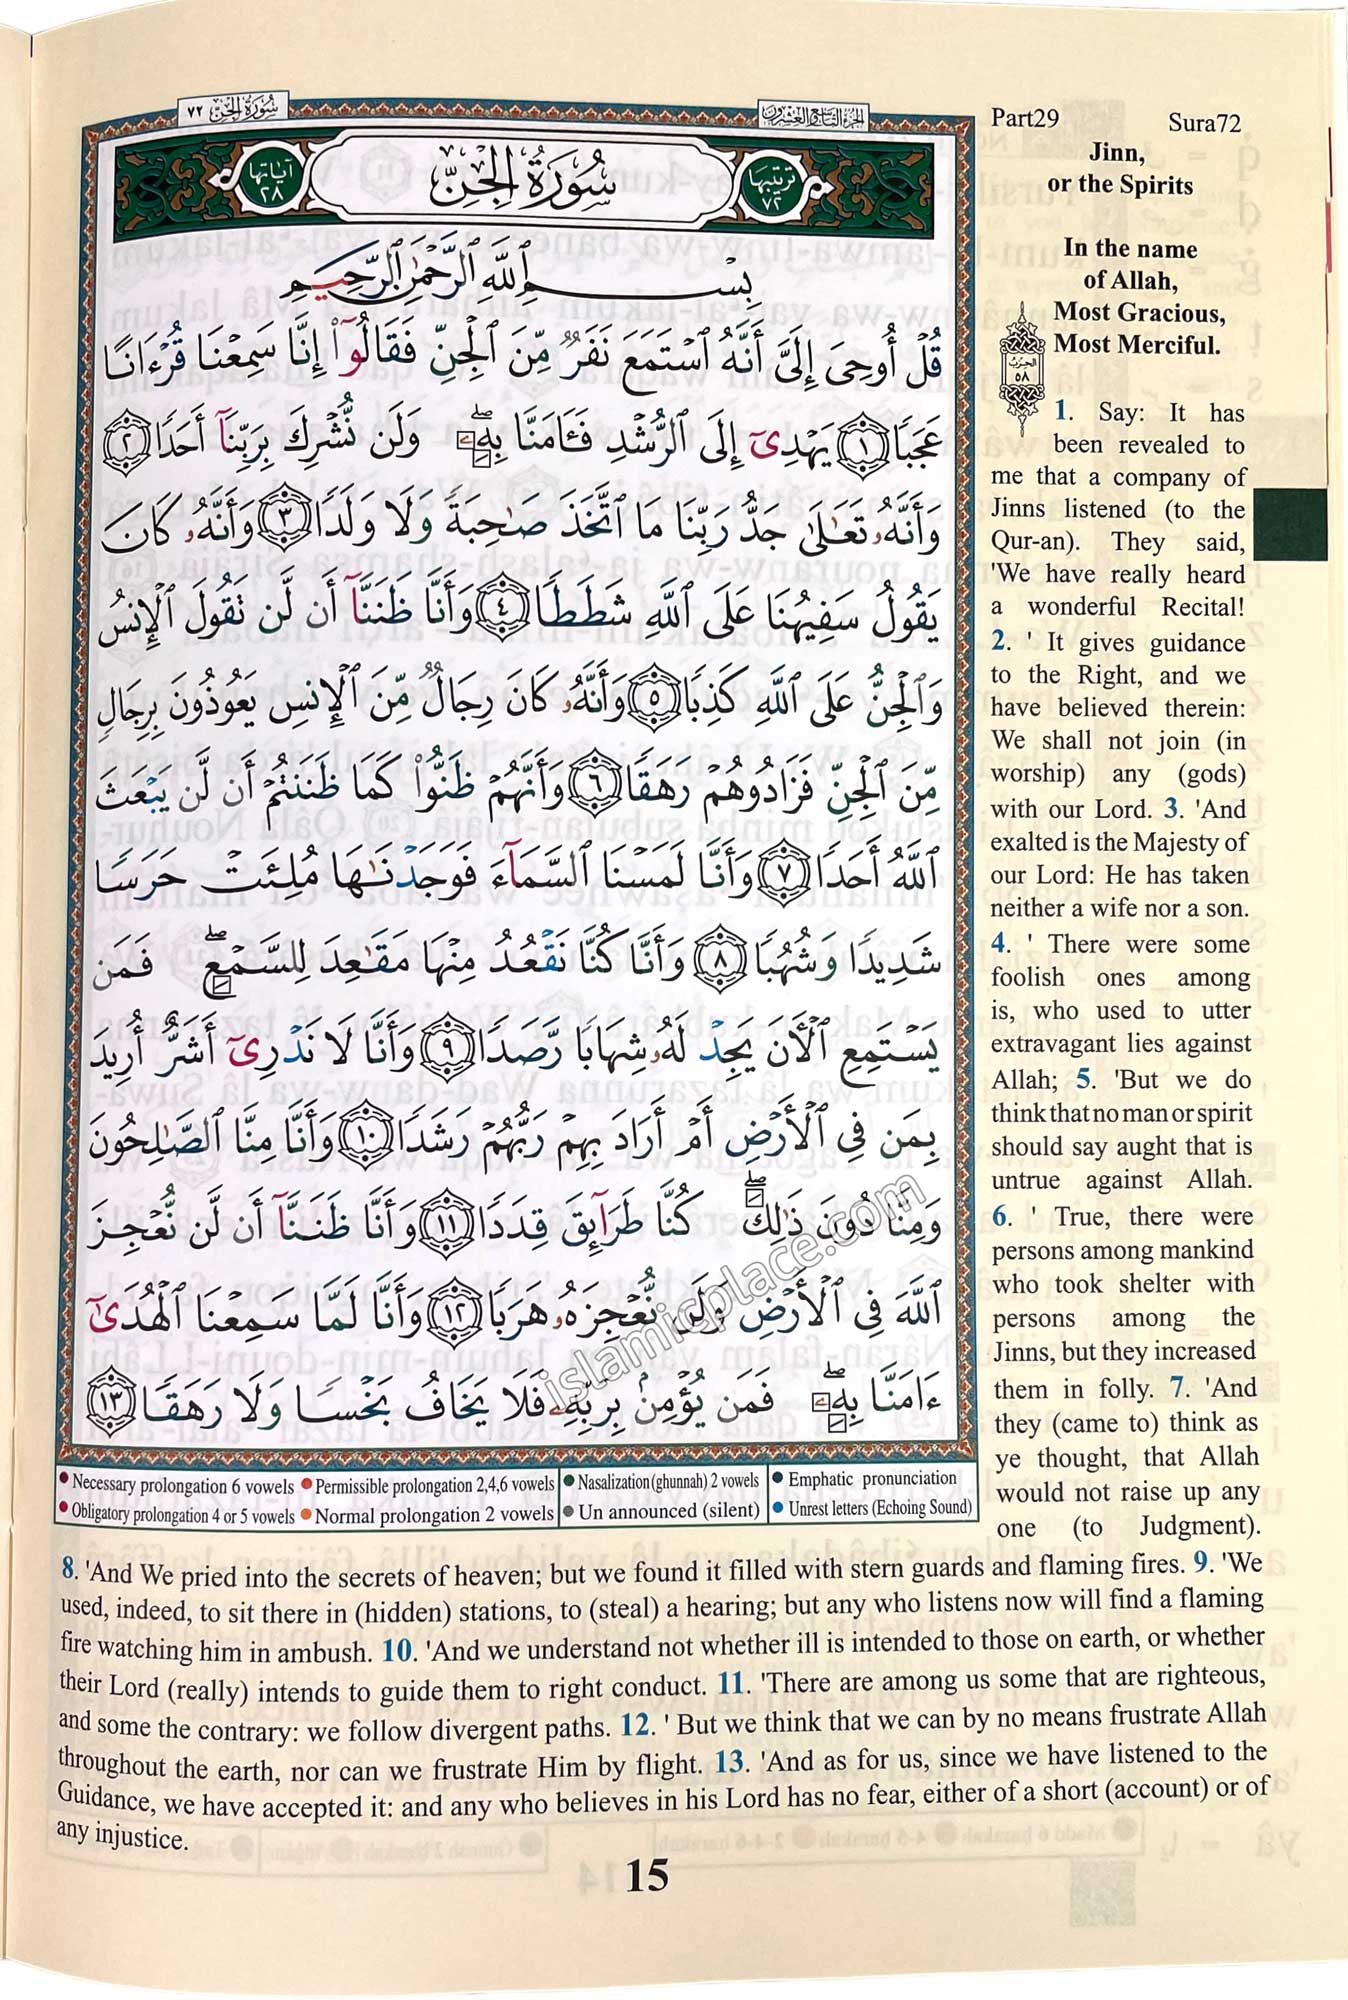 سُورَةُ الجِنّ ٧٢
الجزء التاسع والعشرون
Part29 Sura72
آياتها ٢٨
سُورَةُ الجِنِّ
ترتيبها ٧٢
بِسْمِ ٱللَّهِ ٱلرَّحْمَٰنِ ٱلرَّحِيمِ
قُلْ أُوحِىَ إِلَىَّ أَنَّهُ ٱسْتَمَعَ نَفَرٌ مِّنَ ٱلْجِنِّ فَقَالُوٓا۟ إِنَّا سَمِعْنَا قُرْءَانًا
عَجَبًا ١ يَهْدِىٓ إِلَى ٱلرُّشْدِ فَـَٔامَنَّا بِهِۦ ۖ وَلَن نُّشْرِكَ بِرَبِّنَآ أَحَدًا ٢
وَأَنَّهُۥ تَعَٰلَىٰ جَدُّ رَبِّنَا مَا ٱتَّخَذَ صَٰحِبَةً وَلَا وَلَدًا ٣ وَأَنَّهُۥ كَانَ
يَقُولُ سَفِيهُنَا عَلَى ٱللَّهِ شَطَطًا ٤ وَأَنَّا ظَنَنَّآ أَن لَّن تَقُولَ ٱلْإِنسُ
وَٱلْجِنُّ عَلَى ٱللَّهِ كَذِبًا ٥ وَأَنَّهُۥ كَانَ رِجَالٌ مِّنَ ٱلْإِنسِ يَعُوذُونَ بِرِجَالٍ
مِّنَ ٱلْجِنِّ فَزَادُوهُمْ رَهَقًا ٦ وَأَنَّهُمْ ظَنُّوا۟ كَمَا ظَنَنتُمْ أَن لَّن يَبْعَثَ
ٱللَّهُ أَحَدًا ٧ وَأَنَّا لَمَسْنَا ٱلسَّمَآءَ فَوَجَدْنَٰهَا مُلِئَتْ حَرَسًا
شَدِيدًا وَشُهُبًا ٨ وَأَنَّا كُنَّا نَقْعُدُ مِنْهَا مَقَٰعِدَ لِلسَّمْعِ ۖ فَمَن
يَسْتَمِعِ ٱلْـَٔانَ يَجِدْ لَهُۥ شِهَابًا رَّصَدًا ٩ وَأَنَّا لَا نَدْرِىٓ أَشَرٌّ أُرِيدَ
بِمَن فِى ٱلْأَرْضِ أَمْ أَرَادَ بِهِمْ رَبُّهُمْ رَشَدًا ١٠ وَأَنَّا مِنَّا ٱلصَّٰلِحُونَ
وَمِنَّا دُونَ ذَٰلِكَ ۖ كُنَّا طَرَآئِقَ قِدَدًا ١١ وَأَنَّا ظَنَنَّآ أَن لَّن نُّعْجِزَ
ٱللَّهَ فِى ٱلْأَرْضِ وَلَن نُّعْجِزَهُۥ هَرَبًا ١٢ وَأَنَّا لَمَّا سَمِعْنَا ٱلْهُدَىٰٓ
ءَامَنَّا بِهِۦ ۖ فَمَن يُؤْمِنۢ بِرَبِّهِۦ فَلَا يَخَافُ بَخْسًا وَلَا رَهَقًا ١٣
islamicplace.com
Necessary prolongation 6 vowels Permissible prolongation 2,4,6 vowels Nasalization (ghunnah) 2 vowels Emphatic pronunciation
Obligatory prolongation 4 or 5 vowels Normal prolongation 2 vowels Un announced (silent) Unrest letters (Echoing Sound)
Jinn,
or the Spirits
In the name
of Allah,
Most Gracious,
Most Merciful.
الحزب ٥٨
1. Say: It has
been revealed to
me that a company of
Jinns listened (to the
Qur-an). They said,
'We have really heard
a wonderful Recital!
2. ' It gives guidance
to the Right, and we
have believed therein:
We shall not join (in
worship) any (gods)
with our Lord. 3. 'And
exalted is the Majesty of
our Lord: He has taken
neither a wife nor a son.
4. ' There were some
foolish ones among
is, who used to utter
extravagant lies against
Allah; 5. 'But we do
think that no man or spirit
should say aught that is
untrue against Allah.
6. ' True, there were
persons among mankind
who took shelter with
persons among the
Jinns, but they increased
them in folly. 7. 'And
they (came to) think as
ye thought, that Allah
would not raise up any
one (to Judgment).
8. 'And We pried into the secrets of heaven; but we found it filled with stern guards and flaming fires. 9. 'We
used, indeed, to sit there in (hidden) stations, to (steal) a hearing; but any who listens now will find a flaming
fire watching him in ambush. 10. 'And we understand not whether ill is intended to those on earth, or whether
their Lord (really) intends to guide them to right conduct. 11. 'There are among us some that are righteous,
and some the contrary: we follow divergent paths. 12. ' But we think that we can by no means frustrate Allah
throughout the earth, nor can we frustrate Him by flight. 13. 'And as for us, since we have listened to the
Guidance, we have accepted it: and any who believes in his Lord has no fear, either of a short (account) or of
any injustice.
15